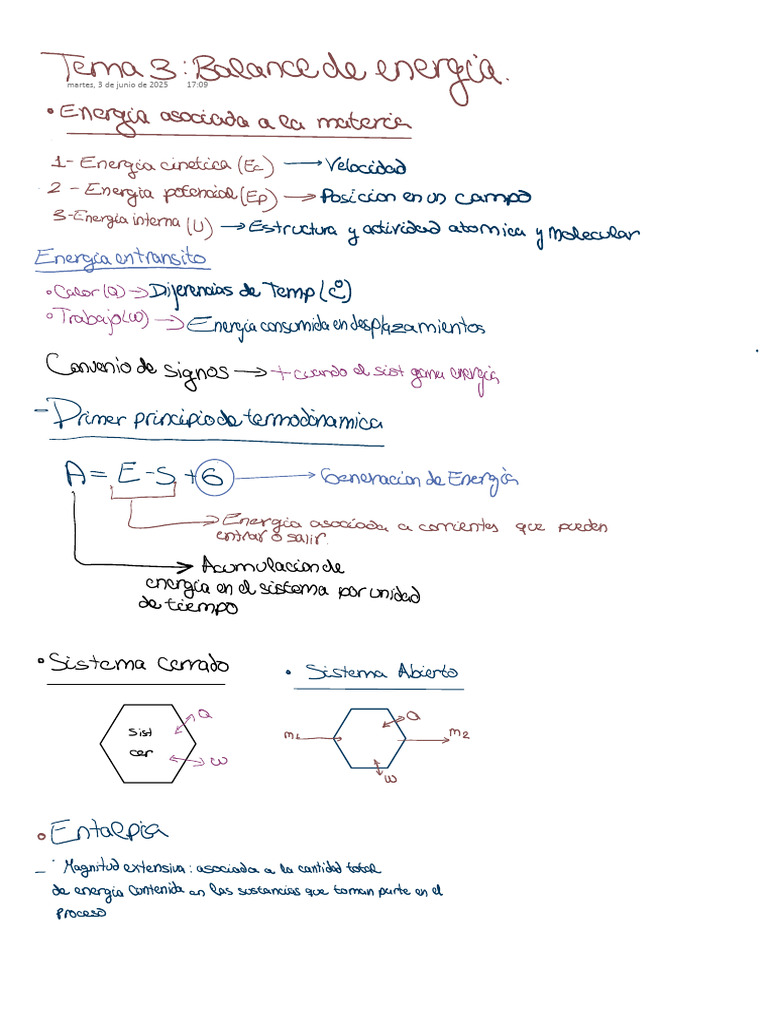 Tema 3: Balance de energia.
martes, 3 de junio de 2025 17:09
• Energia asociada a la materia
1- Energia cinetica (Ec) → Velocidad
2 - Energia potencial (Ep) → Posicion en un campo
3-Energia interna (U) → Estructura y actividad atomica y Molecular
Energia en transito
• Calor (Q) → Diferencias de Temp (
• Trabajo (w) → Energia consumida en desplazamientos
Convenio de signos → + cuando el sist gana energia
- Primer principio de termodinamica
A = E - S + G → Generacion de Energia
→ Energia asociada a corrientes que pueden
entrar o salir.
→ Acumulacion de
energia en el sistema por unidad
de tiempo
• Sistema Cerrado
• Sistema Abierto
Sist
cer
Q
w
m1
Q
m2
w
• Entalpia
- Magnitud extensiva: asociada a la cantidad total
de energia contenida en las sustancias que toman parte en el
proceso